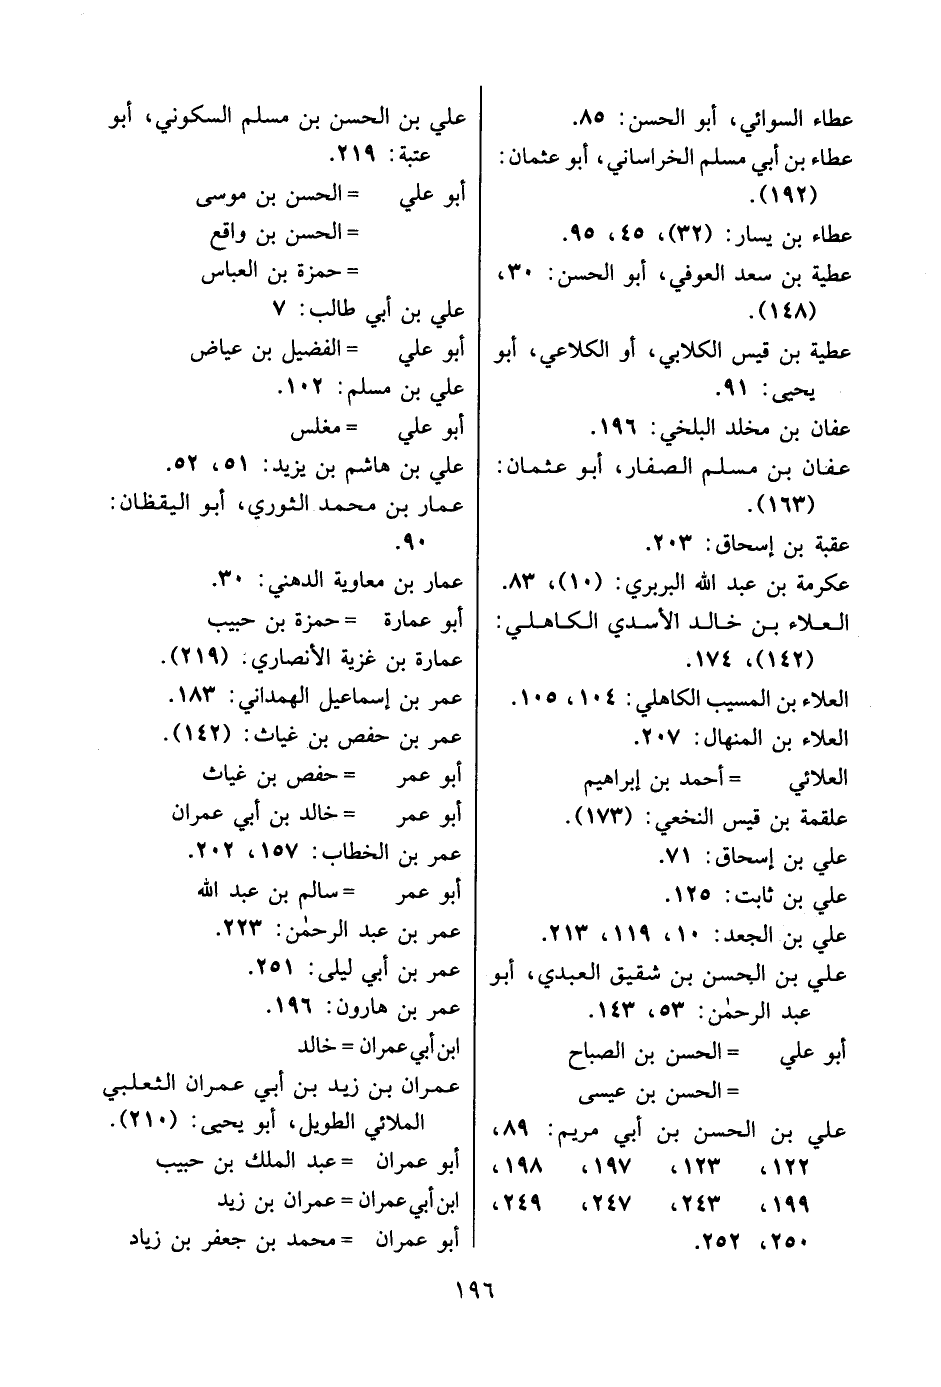 عطاء السوائي، أبو الحسن: ٨٥.
عطاء بن أبي مسلم الخراساني، أبو عثمان:
(١٩٢).
عطاء بن يسار: (٣٢)، ٤٥، ٩٥.
عطية بن سعد العوفي، أبو الحسن: ٣٠،
(١٤٨).
عطية بن قيس الكلابي، أو الكلاعي، أبو
يحيى: ٩١.
عفان بن مخلد البلخي: ١٩٦.
عفان بن مسلم الصفار، أبو عثمان:
(١٦٣).
عقبة بن إسحاق: ٢٠٣.
عكرمة بن عبد الله البربري: (١٠)، ٨٣.
العلاء بن خالد الأسدي الكاهلي:
(١٤٢)، ١٧٤.
العلاء بن المسيب الكاهلي: ١٠٤، ١٠٥.
العلاء بن المنهال: ٢٠٧.
العلائي = أحمد بن إبراهيم
علقمة بن قيس النخعي: (١٧٣).
علي بن إسحاق: ٧١.
علي بن ثابت: ١٢٥.
علي بن الجعد: ١٠، ١١٩، ٢١٣.
علي بن الحسن بن شقيق العبدي، أبو
عبد الرحمٰن: ٥٣، ١٤٣.
أبو علي = الحسن بن الصباح
= الحسن بن عيسى
علي بن الحسن بن أبي مريم: ٨٩،
١٢٢، ١٢٣، ١٩٧، ١٩٨،
١٩٩، ٢٤٣، ٢٤٧، ٢٤٩،
٢٥٠، ٢٥٢.
علي بن الحسن بن مسلم السكوني، أبو
عتبة: ٢١٩.
أبو علي = الحسن بن موسى
= الحسن بن واقع
= حمزة بن العباس
علي بن أبي طالب: ٧
أبو علي = الفضيل بن عياض
علي بن مسلم: ١٠٢.
أبو علي = مغلس
علي بن هاشم بن يزيد: ٥١، ٥٢.
عمار بن محمد الثوري، أبو اليقظان:
٩٠.
عمار بن معاوية الدهني: ٣٠.
أبو عمارة = حمزة بن حبيب
عمارة بن غزية الأنصاري: (٢١٩).
عمر بن إسماعيل الهمداني: ١٨٣.
عمر بن حفص بن غياث: (١٤٢).
أبو عمر = حفص بن غياث
أبو عمر = خالد بن أبي عمران
عمر بن الخطاب: ١٥٧، ٢٠٢.
أبو عمر = سالم بن عبد الله
عمر بن عبد الرحمٰن: ٢٢٣.
عمر بن أبي ليلى: ٢٥١.
عمر بن هارون: ١٩٦.
ابن أبي عمران = خالد
عمران بن زيد بن أبي عمران الثعلبي
الملائي الطويل، أبو يحيى: (٢١٠).
أبو عمران = عبد الملك بن حبيب
ابن أبي عمران = عمران بن زيد
أبو عمران = محمد بن جعفر بن زياد
١٩٦